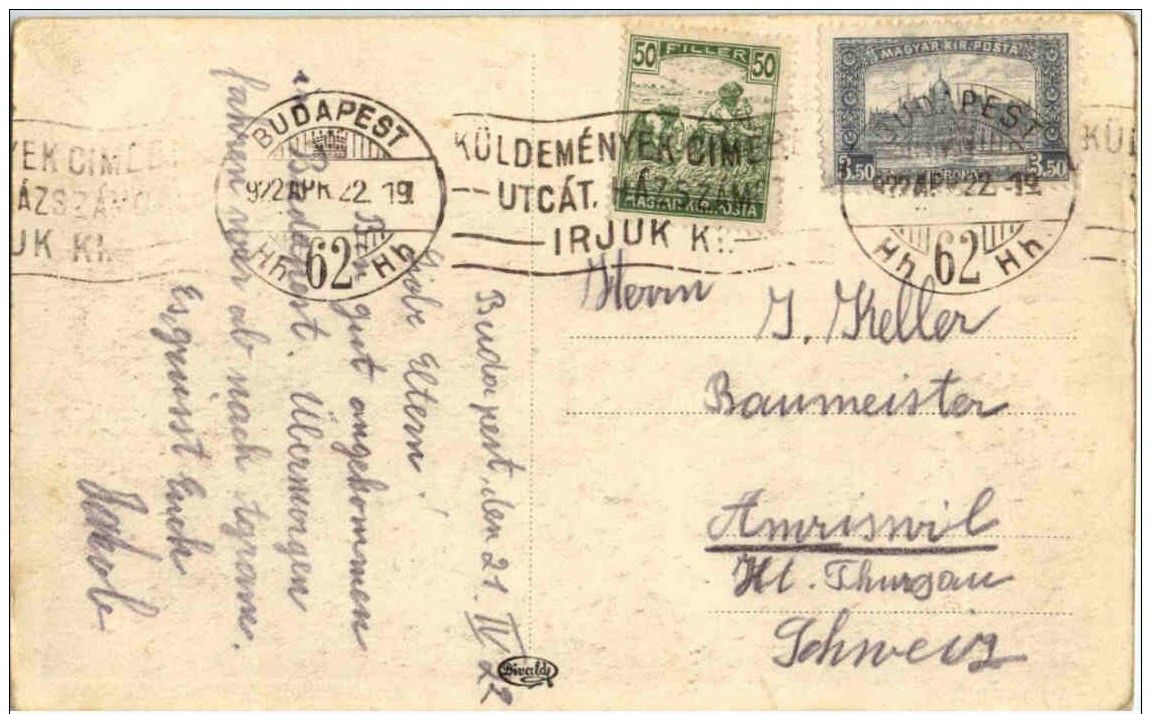 50 FILLER 50
MAGYAR KIR. POSTA
MAGYAR KIR. POSTA
3.50 3.50
BUDAPEST
922 APR. 22. 19
Hh 62 Hh
KÜLDEMÉNYEK CIMZÉ
UTCÁT, HÁZSZÁMO
IRJUK KI.
BUDAPEST
922 APR 22. 19
Hh 62 Hh
KÜL
YEK CIMZÉ
ÁZSZÁMO
JUK KI.
Budapest, den 21. IV 22
Liebe Eltern!
Bin gut angekommen
in Budapest. Übermorgen
fahren wir ab nach Agram.
Es grüsst Euch
Jakob
Herrn
J. Keller
Baumeister
Amriswil
Kt. Thurgau
Schweiz
Divald